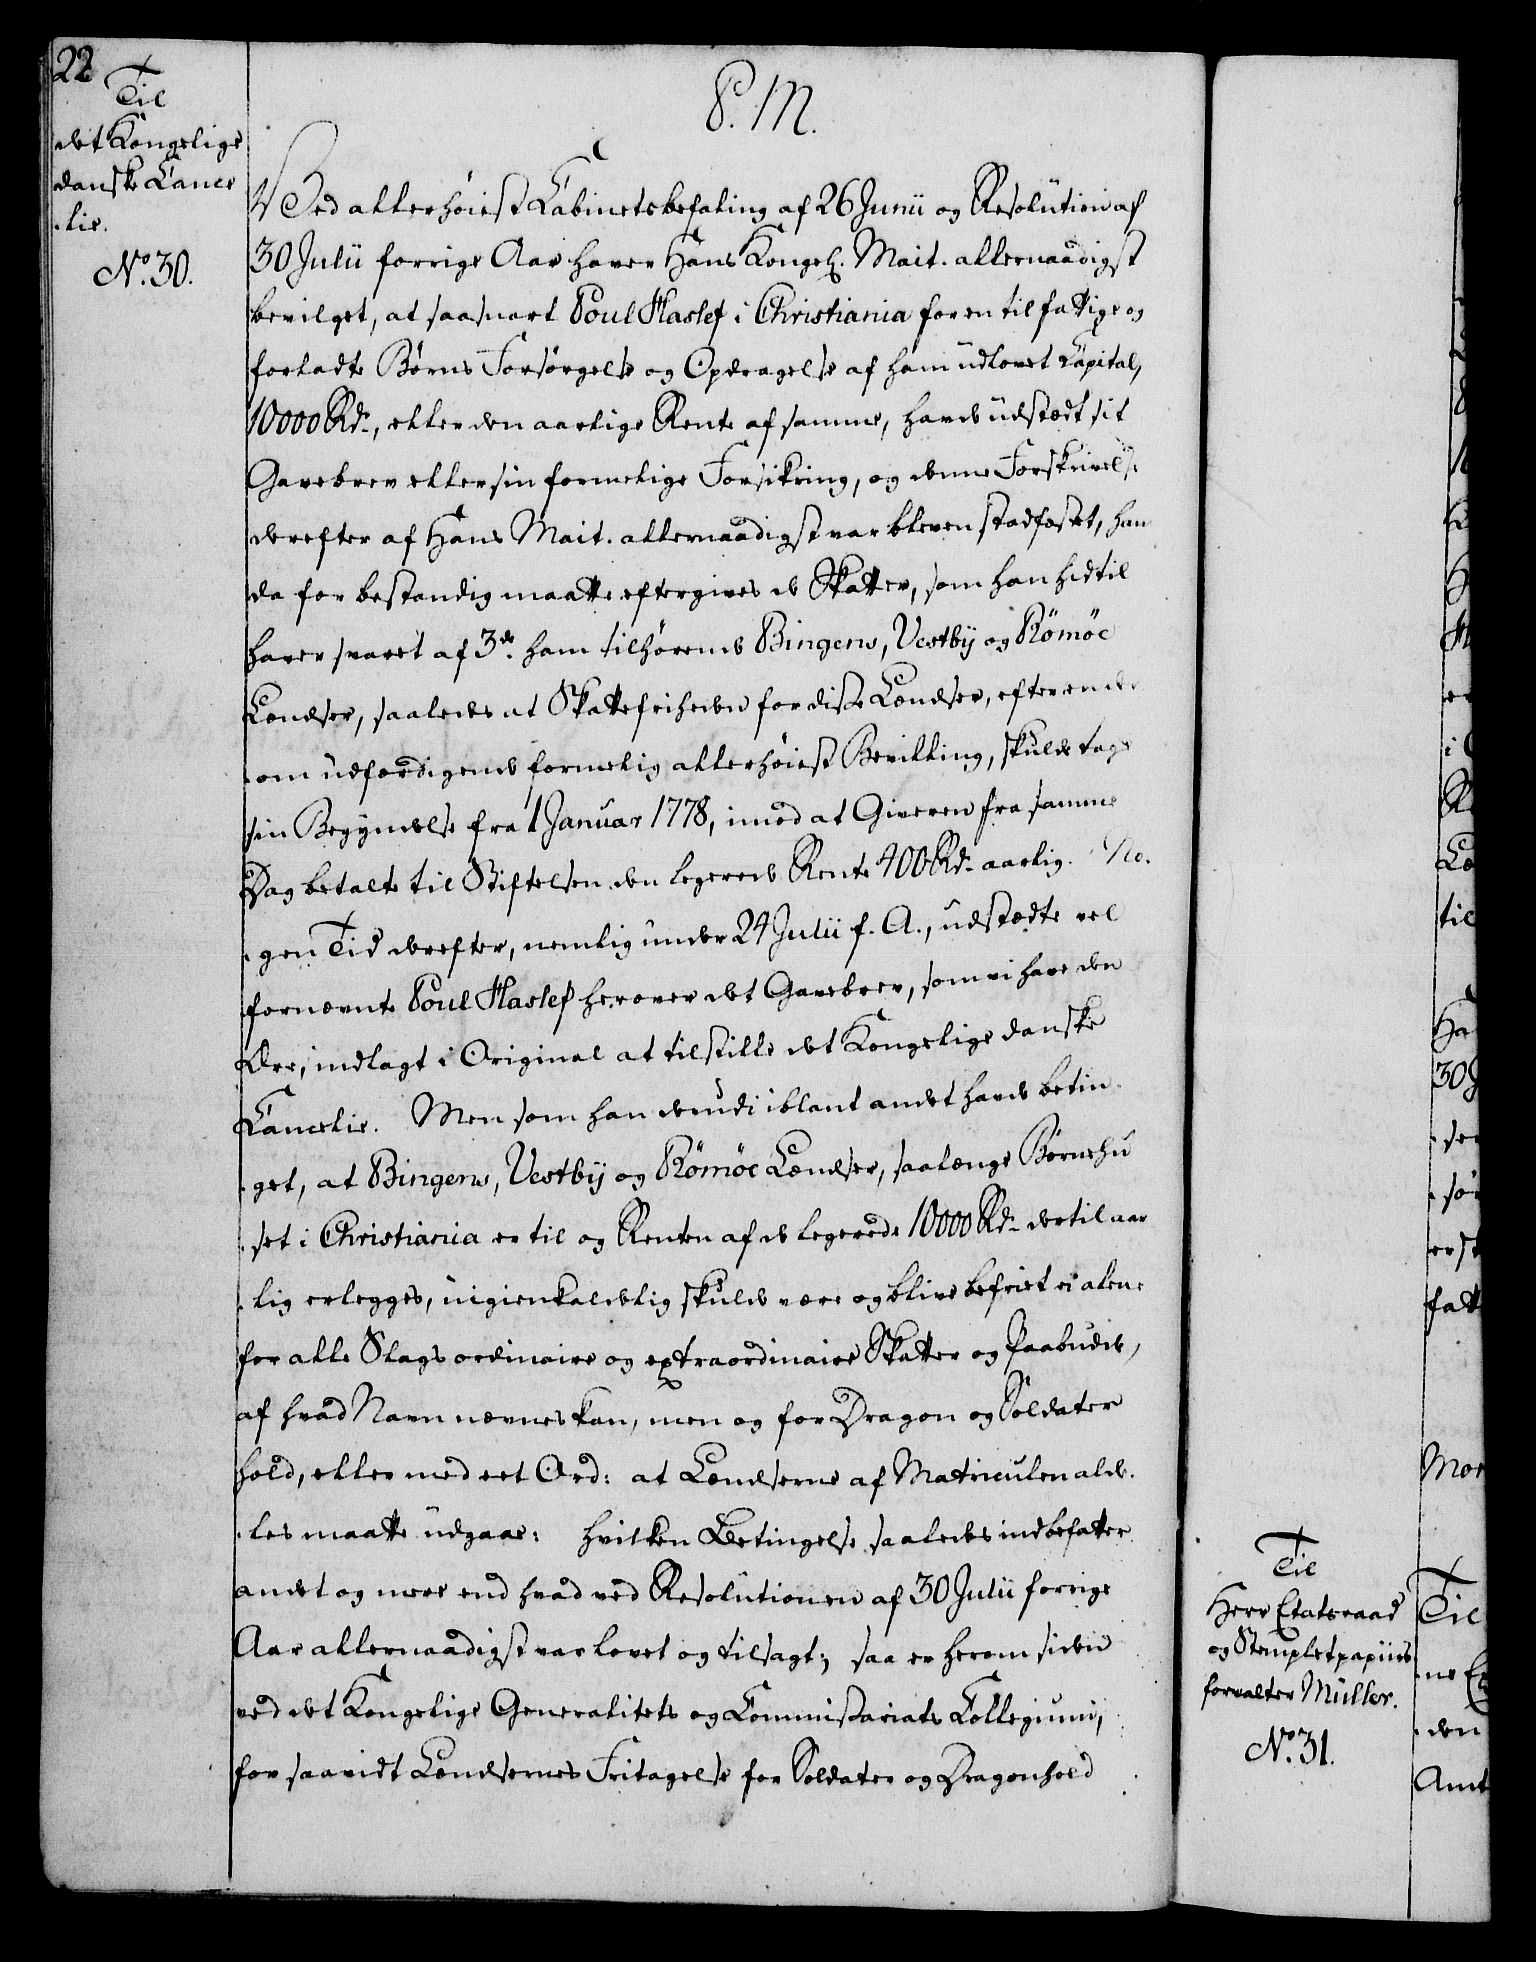 22
Til
det Kongelige
danske Cance
.lie.
No. 30.
P. M.
Ved allerhøiest Cabinetsbefaling af 26 Junii og Resolution af
30 Julii forrige Aar haver Hans Kongel. Mait. allernaadigst
bevilget, at saasnart Poul Haslef i Christiania for en til fattige og
forladte Børns Forsørgelse og Opdragelse af ham udlovet Capital,
10000 Rdr., eller den aarlige Rente af samme, havde udstædt sit
Gavebrev eller sin formelige Forsikring, og denne Forskrivelse
derefter af Hans Mait. allernaadigst var bleven stadfæstet, ham
da for bestandig maatte eftergives de Skatter, som han hidtil
haver svaret af 3de ham tilhørende Bingens, Vestbÿ og Römöe
Lændser, saaledes at Skattefriheden for disse Lændser, efter en der
.om udfærdigende formelig allerhøiest Bevilling, skulde tage
sin Begyndelse fra 1 Januar 1778, imod at Giveren fra samme
Dag betalte til Stiftelsen den legerede Rente 400 Rdr. aarlig. No.
.gen Tid derefter, nemlig under 24 Julii f. A., udstædte vel
fornævnte Poul Haslef herover det Gavebrev, som vi have den
Ære, indlagt i Original at tilstille det Kongelige danske
Cancelie. Men som han derudi iblant andet havde betin
.get, at Bingens, Vestbÿ og Römöe Lændser, saalænge Børnehu
.set i Christiania er til og Renten af de legerede 10000 Rdr. dertil aar
.lig erlegges, uigienkaldelig skulde være og blive befriet ei alene
for alle Slags ordinaire og extraordinaire Skatter og Paabudde,
af hvad Navn nævnes kan, men og for Dragon og Soldater
hold, eller med eet Ord: at Lændserne af Matriculen alde.
.les maatte udgaae: hvilken Betingelse saaledes indbefatter
andet og mere end hvad ved Resolutionen af 30 Julii forrige
Aar allernaadigst var lovet og tilsagt; saa er herom siden
ved det Kongelige Generalitets og Commissariats Collegium,
for saavidt Lændsernes Fritagelse for Soldater og Dragonhold
Til
Herr Etatsraad
og Stempletpapiirs
forvalter Müller.
No. 31.